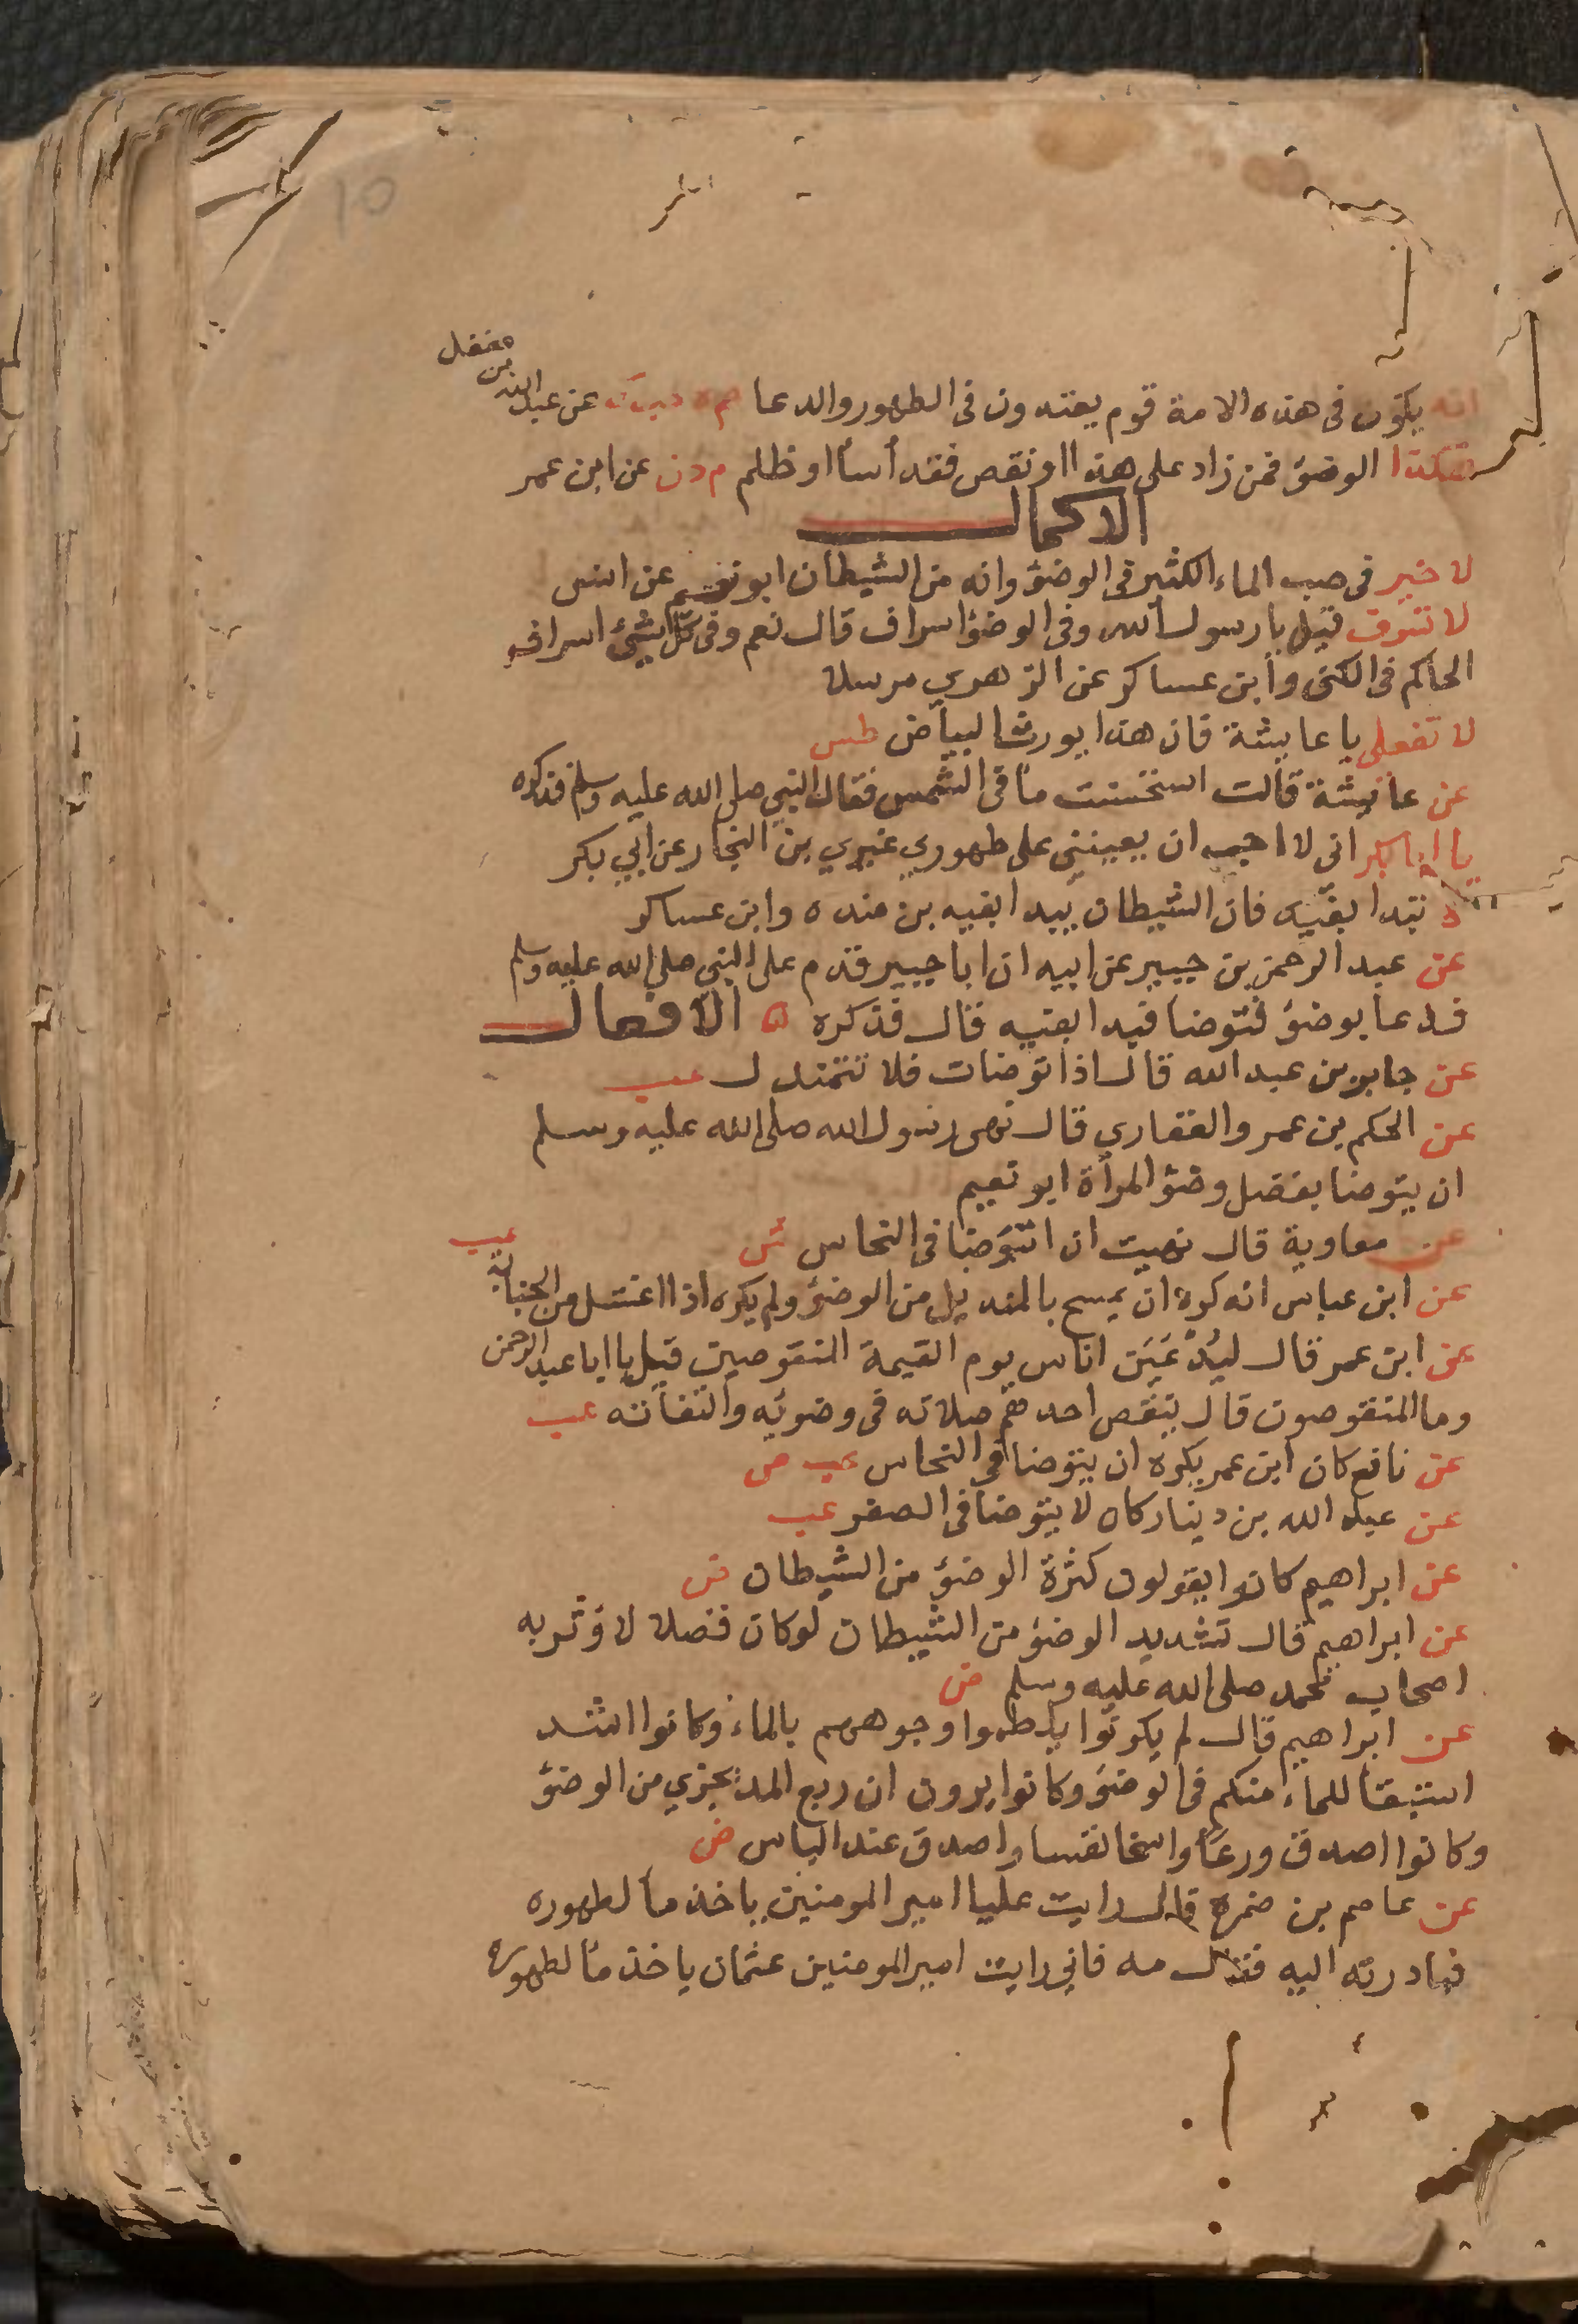 10
انه يكون فى هذه الامة قوم يعتدون فى الطهور والدعا عن عبد الله بن مغفل
هكذا الوضؤ فمن زاد على هذا او نقص فقد أسأ او ظلم م د ن عن ابن عمر
الاكمال
لا خير فى صب الماء الكثير فى الوضؤ وانه من الشيطان ابو نعيم عن انس
لا تسرف قيل يا رسول الله وفى الوضؤ اسراف قال نعم وفى كل شيئ اسراف
الحاكم فى الكنى وابن عساكر عن الزهري مرسلا
لا تفعلى يا عايشة فان هذا يورث البياض طس
عن عائشة قالت اسخنت مأ فى الشمس فقال النبي صلى الله عليه وسلم فذكره
يا ابا بكر انى لا احب ان يعيننى على طهوري غيري بن النجار عن ابي بكر
لا تبتدا بفيك فان الشيطان يبدا بفيه بن منده وابن عساكر
عن عبد الرحمن بن جبير عن ابيه ان ابا جبير قدم على النبى صلى الله عليه وسلم
فدعا بوضؤ فتوضا فبدا بفيه فقال فذكره ه الافعال
عن جابر بن عبد الله قال اذا توضات فلا تتمندل عب
عن الحكم بن عمرو الغفاري قال نهى رسول الله صلى الله عليه وسلم
ان يتوضا بفضل وضؤ المرأة ابو نعيم
عن معاوية قال نهيت ان اتوضا فى النحاس ش
عن ابن عباس انه كره ان يمسح بالمنديل من الوضؤ ولم يكره اذا اغتسل من الجنابة عب
عن ابن عمر قال ليُدْعَيَن اناس يوم القيمة المنقوصين قيل يا ابا عبد الرحمن
وما المنقوصون قال ينقص احدهم صلاته فى وضوئه والتفاته عب
عن نافع كان ابن عمر يكره ان يتوضا فى النحاس عب ص
عن عبد الله بن دينار كان لا يتوضا فى الصفر عب
عن ابراهيم كانوا يقولون كثرة الوضؤ من الشيطان ض
عن ابراهيم قال تشديد الوضؤ من الشيطان لو كان فضلا لاوثر به
اصحاب محمد صلى الله عليه وسلم ض
عن ابراهيم قال لم يكونوا يلطموا وجوههم بالماء وكانوا اشد
استبقأ للماء منكم فى الوضؤ وكانوا يرون ان ربع المد يجزي من الوضؤ
وكانوا اصدق ورعا واسخا نفسا واصدق عند الباس ض
عن عاصم بن ضمرة قال رايت عليا امير المومنين ياخذ مأ لطهوره
فبادرته اليه فقال مه فاني رايت امير المومنين عثمان ياخذ مأ لطهوره